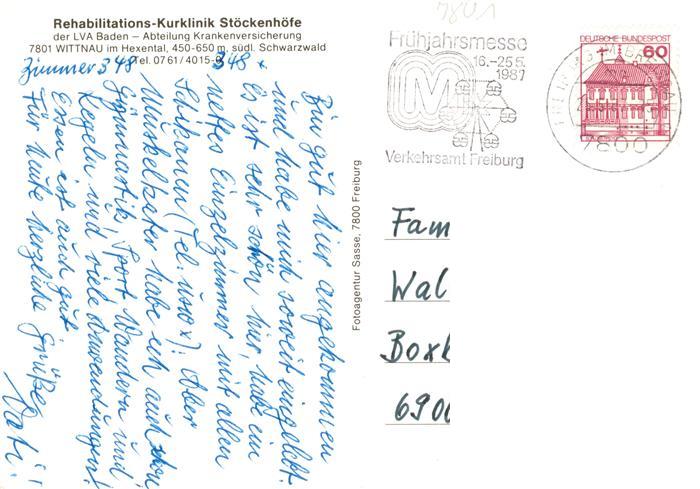 7801
Rehabilitations-Kurklinik Stöckenhöfe
der LVA Baden – Abteilung Krankenversicherung
7801 WITTNAU im Hexental, 450-650 m, südl. Schwarzwald
Tel. 0761/4015-0 348 x
Zimmer 348
Bin gut hier angekommen
und habe mich soweit eingelebt.
Es ist sehr schön hier, habe ein
nettes Einzelzimmer mit allen
Schikanen (Tel. usw x)! Aber
Muskelkater habe ich auch schon
Gymnastik, Sport Wandern und
Kegeln und viele Anwendungen!
Essen ist auch gut
Für heute herzliche Grüße
Vati!
Fotoagentur Sasse, 7800 Freiburg
Frühjahrsmesse
16.-25.5.
1987
M
Verkehrsamt Freiburg
DEUTSCHE BUNDESPOST
60
7800
Fam
Wal
Boxb
6900